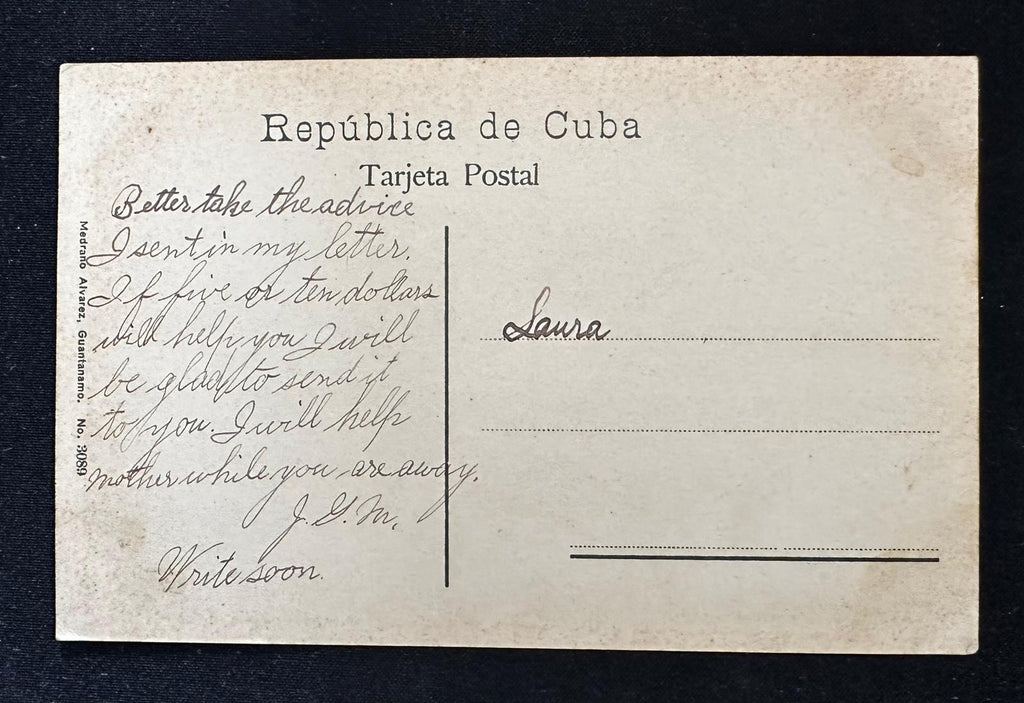 República de Cuba
Tarjeta Postal
Better take the advice
I sent in my letter.
If five or ten dollars
will help you I will
be glad to send it
to you. I will help
mother while you are away.
J. G. M.
Write soon.
Laura
Medrano Alvarez, Guantanamo. No. 3089